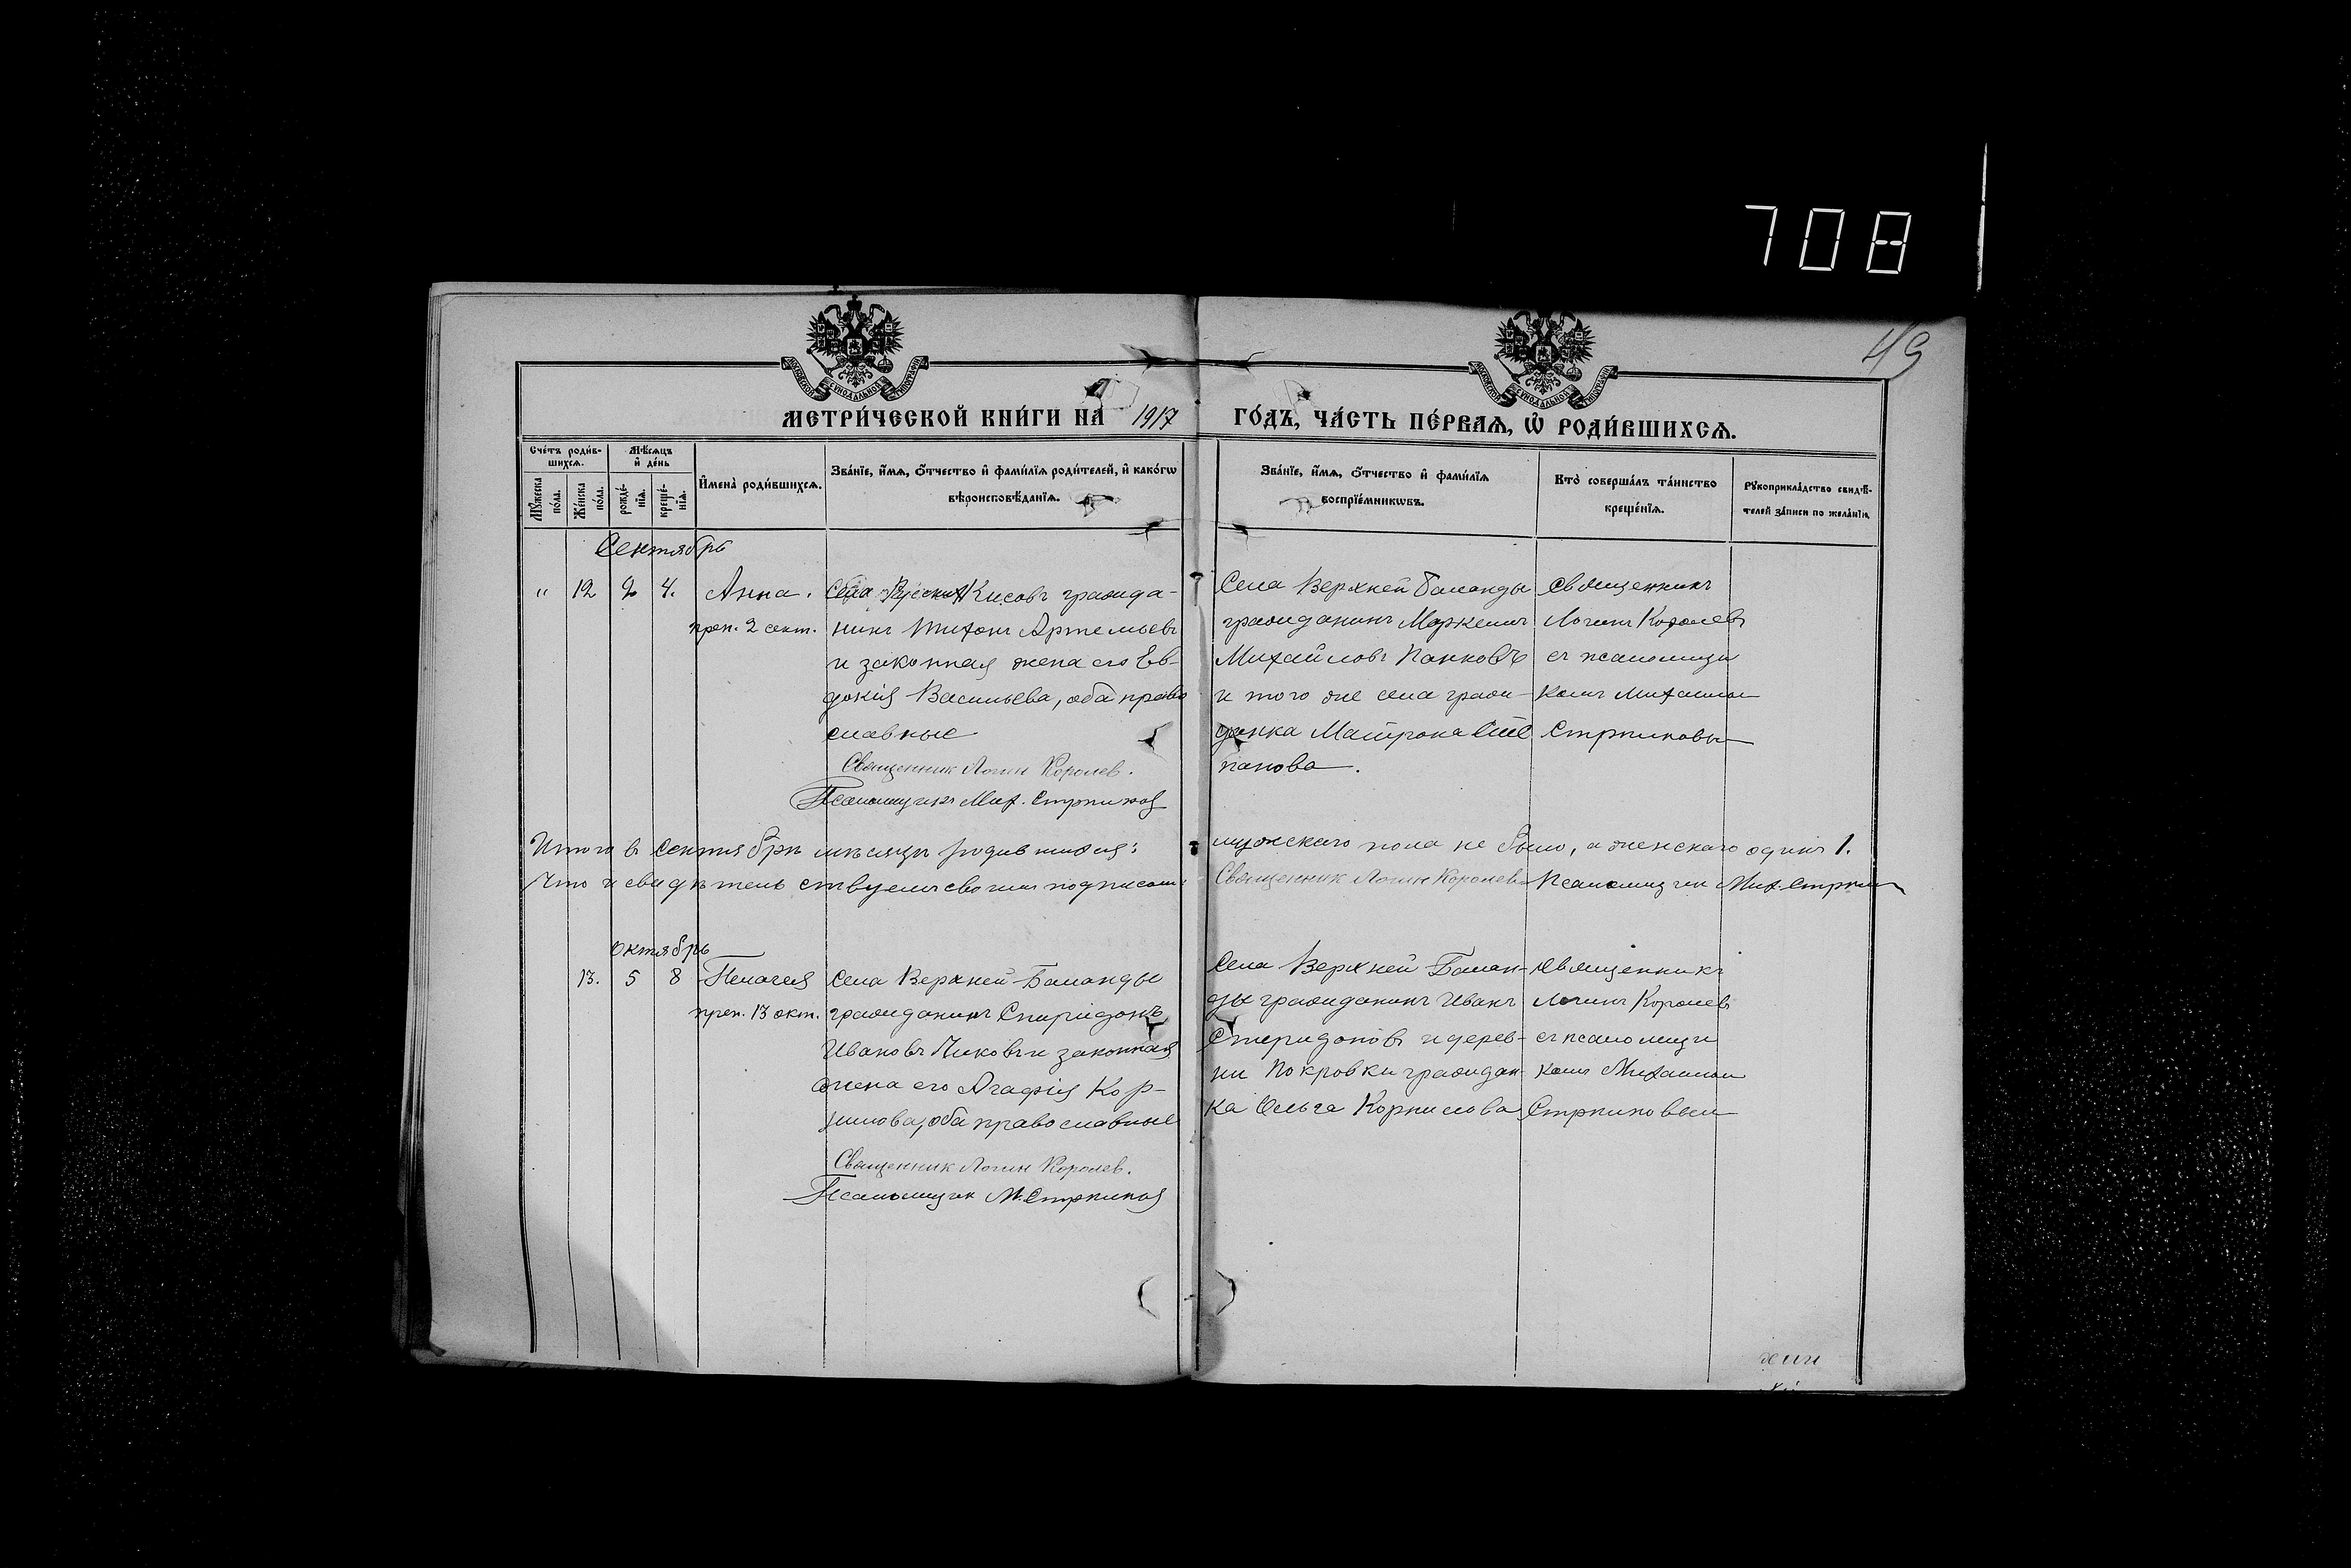 708
49
МЕТРИ́ЧЕСКОЙ КНИ́ГИ НА 1917 ГО́ДЪ, ЧА́СТЬ ПЕ́РВАѦ, Ѽ РОДИ́ВШИХСѦ.
Сче́тъ роди́в-
шихсѧ.
Мѣ́сѧцъ
и҆ де́нь
Мꙋ́жеска по́ла.
Же́нска по́ла.
рожде́-
нїѧ.
креще́-
нїѧ.
И҆мена̀ роди́вшихсѧ.
Зва́нїе, и҆́мѧ, ѻ҆́тчество и҆ фами́лїѧ роди́телей, и҆ како́гѡ
вѣроисповѣ́данїѧ.
Зва́нїе, и҆́мѧ, ѻ҆́тчество и҆ фами́лїѧ
воспрїе́мникѡвъ.
Кто̀ соверша́лъ та́инство
креще́нїѧ.
Рꙋкоприкла́дство свидѣ́-
телей за́писи по жела́нїю.
Сентябрь
" 12 2 4. Анна.
преп. 2 сент.
Села Кисовъ гражда-
нинъ Тихонъ Артемьевъ
и законная жена его Ев-
докія Васильева, оба право
славные
Священник Логин Королев.
Псаломщикъ Мих.
Села Верхней Баланды
гражданинъ Маркелъ
Михайловъ Панковъ
и того же села граж-
данка Матрона Сте
панова.
Священникъ
Логинъ Королевъ
съ псаломщи
комъ Михаилом
Итого въ Сентябрѣ мѣсяцѣ родившихся: мужскаго пола не было, а женскаго одинъ 1.
Что и свидѣтельствуемъ своими подписами: Священник Логин Королев Псаломщик Мих.
Октябрь
13. 5 8 Пелагея
преп. 13 окт.
Села Верхней-Баланды
гражданинъ Спиридонъ
Ивановъ и законная
жена его Агафія Кор-
нилова, оба православные
Священник Логин Королев.
Псаломщик М.
Села Верхней Балан-
ды гражданинъ Иванъ
Спиридоновъ и дерев-
ни Покровки граждан-
ка Ольга Корнилова
Священникъ
Логинъ Королевъ
съ псаломщи
комъ Михаилом